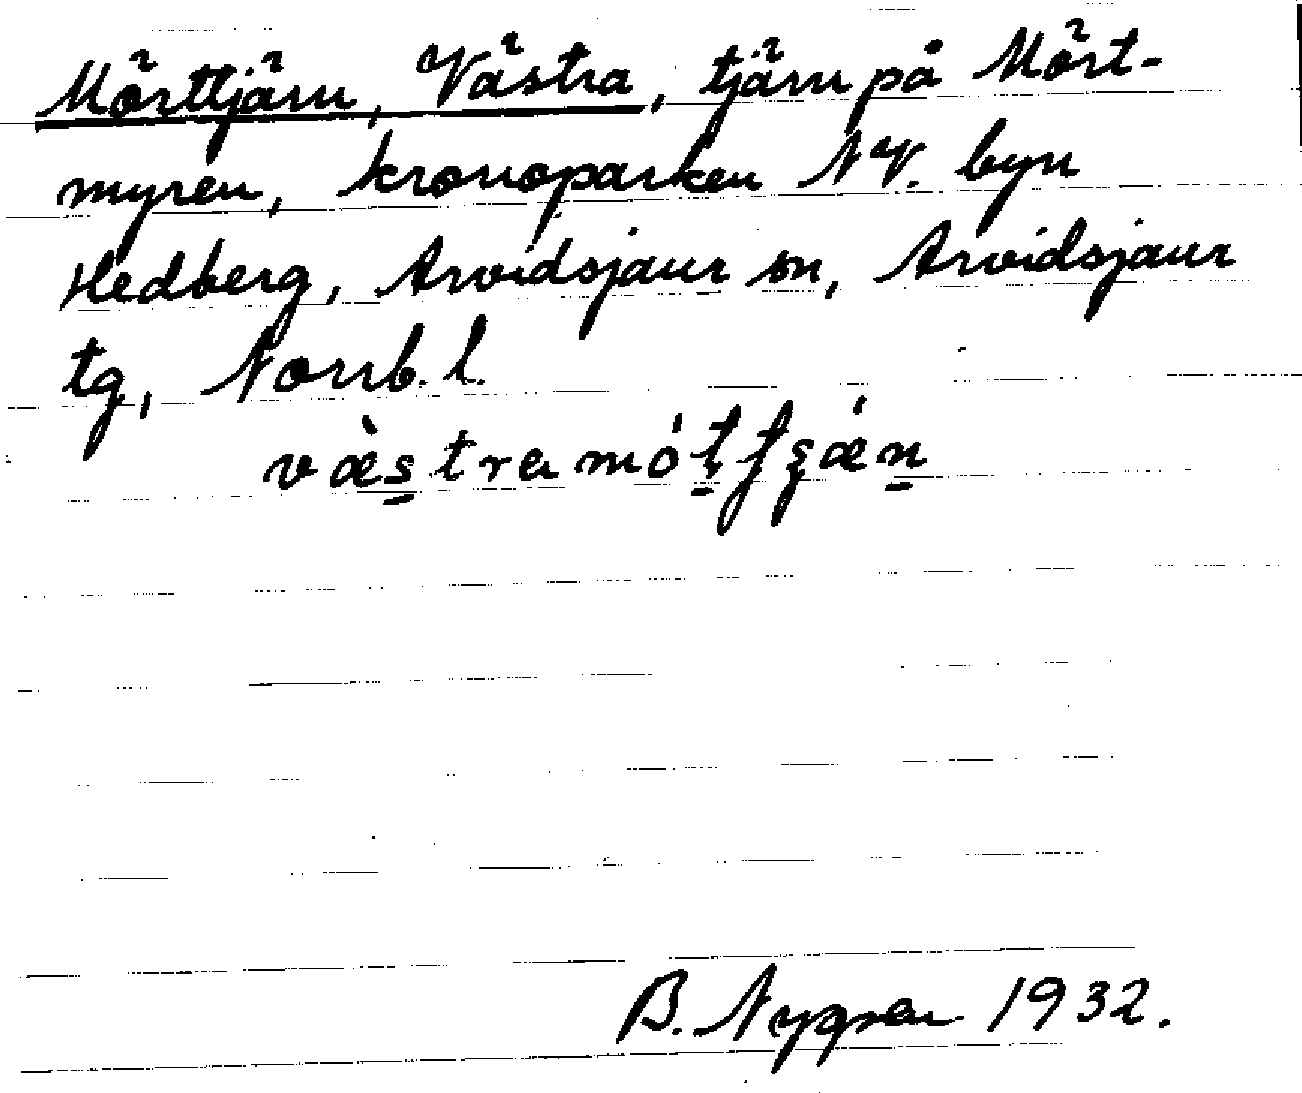 Mörttjärn, Västra, tjärn på Mört-
myren, kronoparken NV. byn
Hedberg, Arvidsjaur sn, Arvidsjaur
tg, Norrb. l.
væ̀stra
B. Nygren 1932.